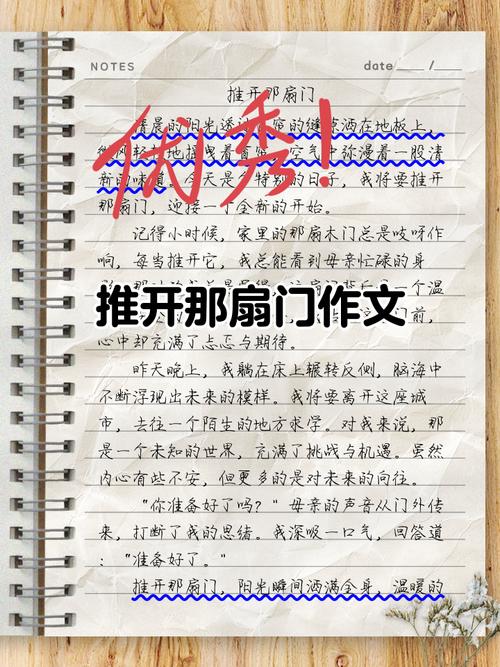 NOTES
date ___ / ___
推开那扇门
优秀!
清晨的阳光透过帘的缝隙洒在地板上，
地摇曳着窗帘，空气中弥漫着一股清
新的味道。今天是个特别的日子，我将要推开
那扇门，迎接一个全新的开始。
记得小时候，家里的那扇木门总是吱呀作
响，每当推开它，我总能看到母亲忙碌的身
一个温
推开那扇门作文
门前，
心中却充满了忐忑与期待。
昨天晚上，我躺在床上辗转反侧，脑海中
不断浮现出未来的模样。我将要离开这座城
市，去往一个陌生的地方求学。对我来说，那
是一个未知的世界，充满了挑战与机遇。虽然
内心有些不安，但更多的是对未来的向往。
“你准备好了吗？”母亲的声音从门外传
来，打断了我的思绪。我深吸一口气，回答道
：“准备好了。”
推开那扇门，阳光瞬间洒满全身，温暖的